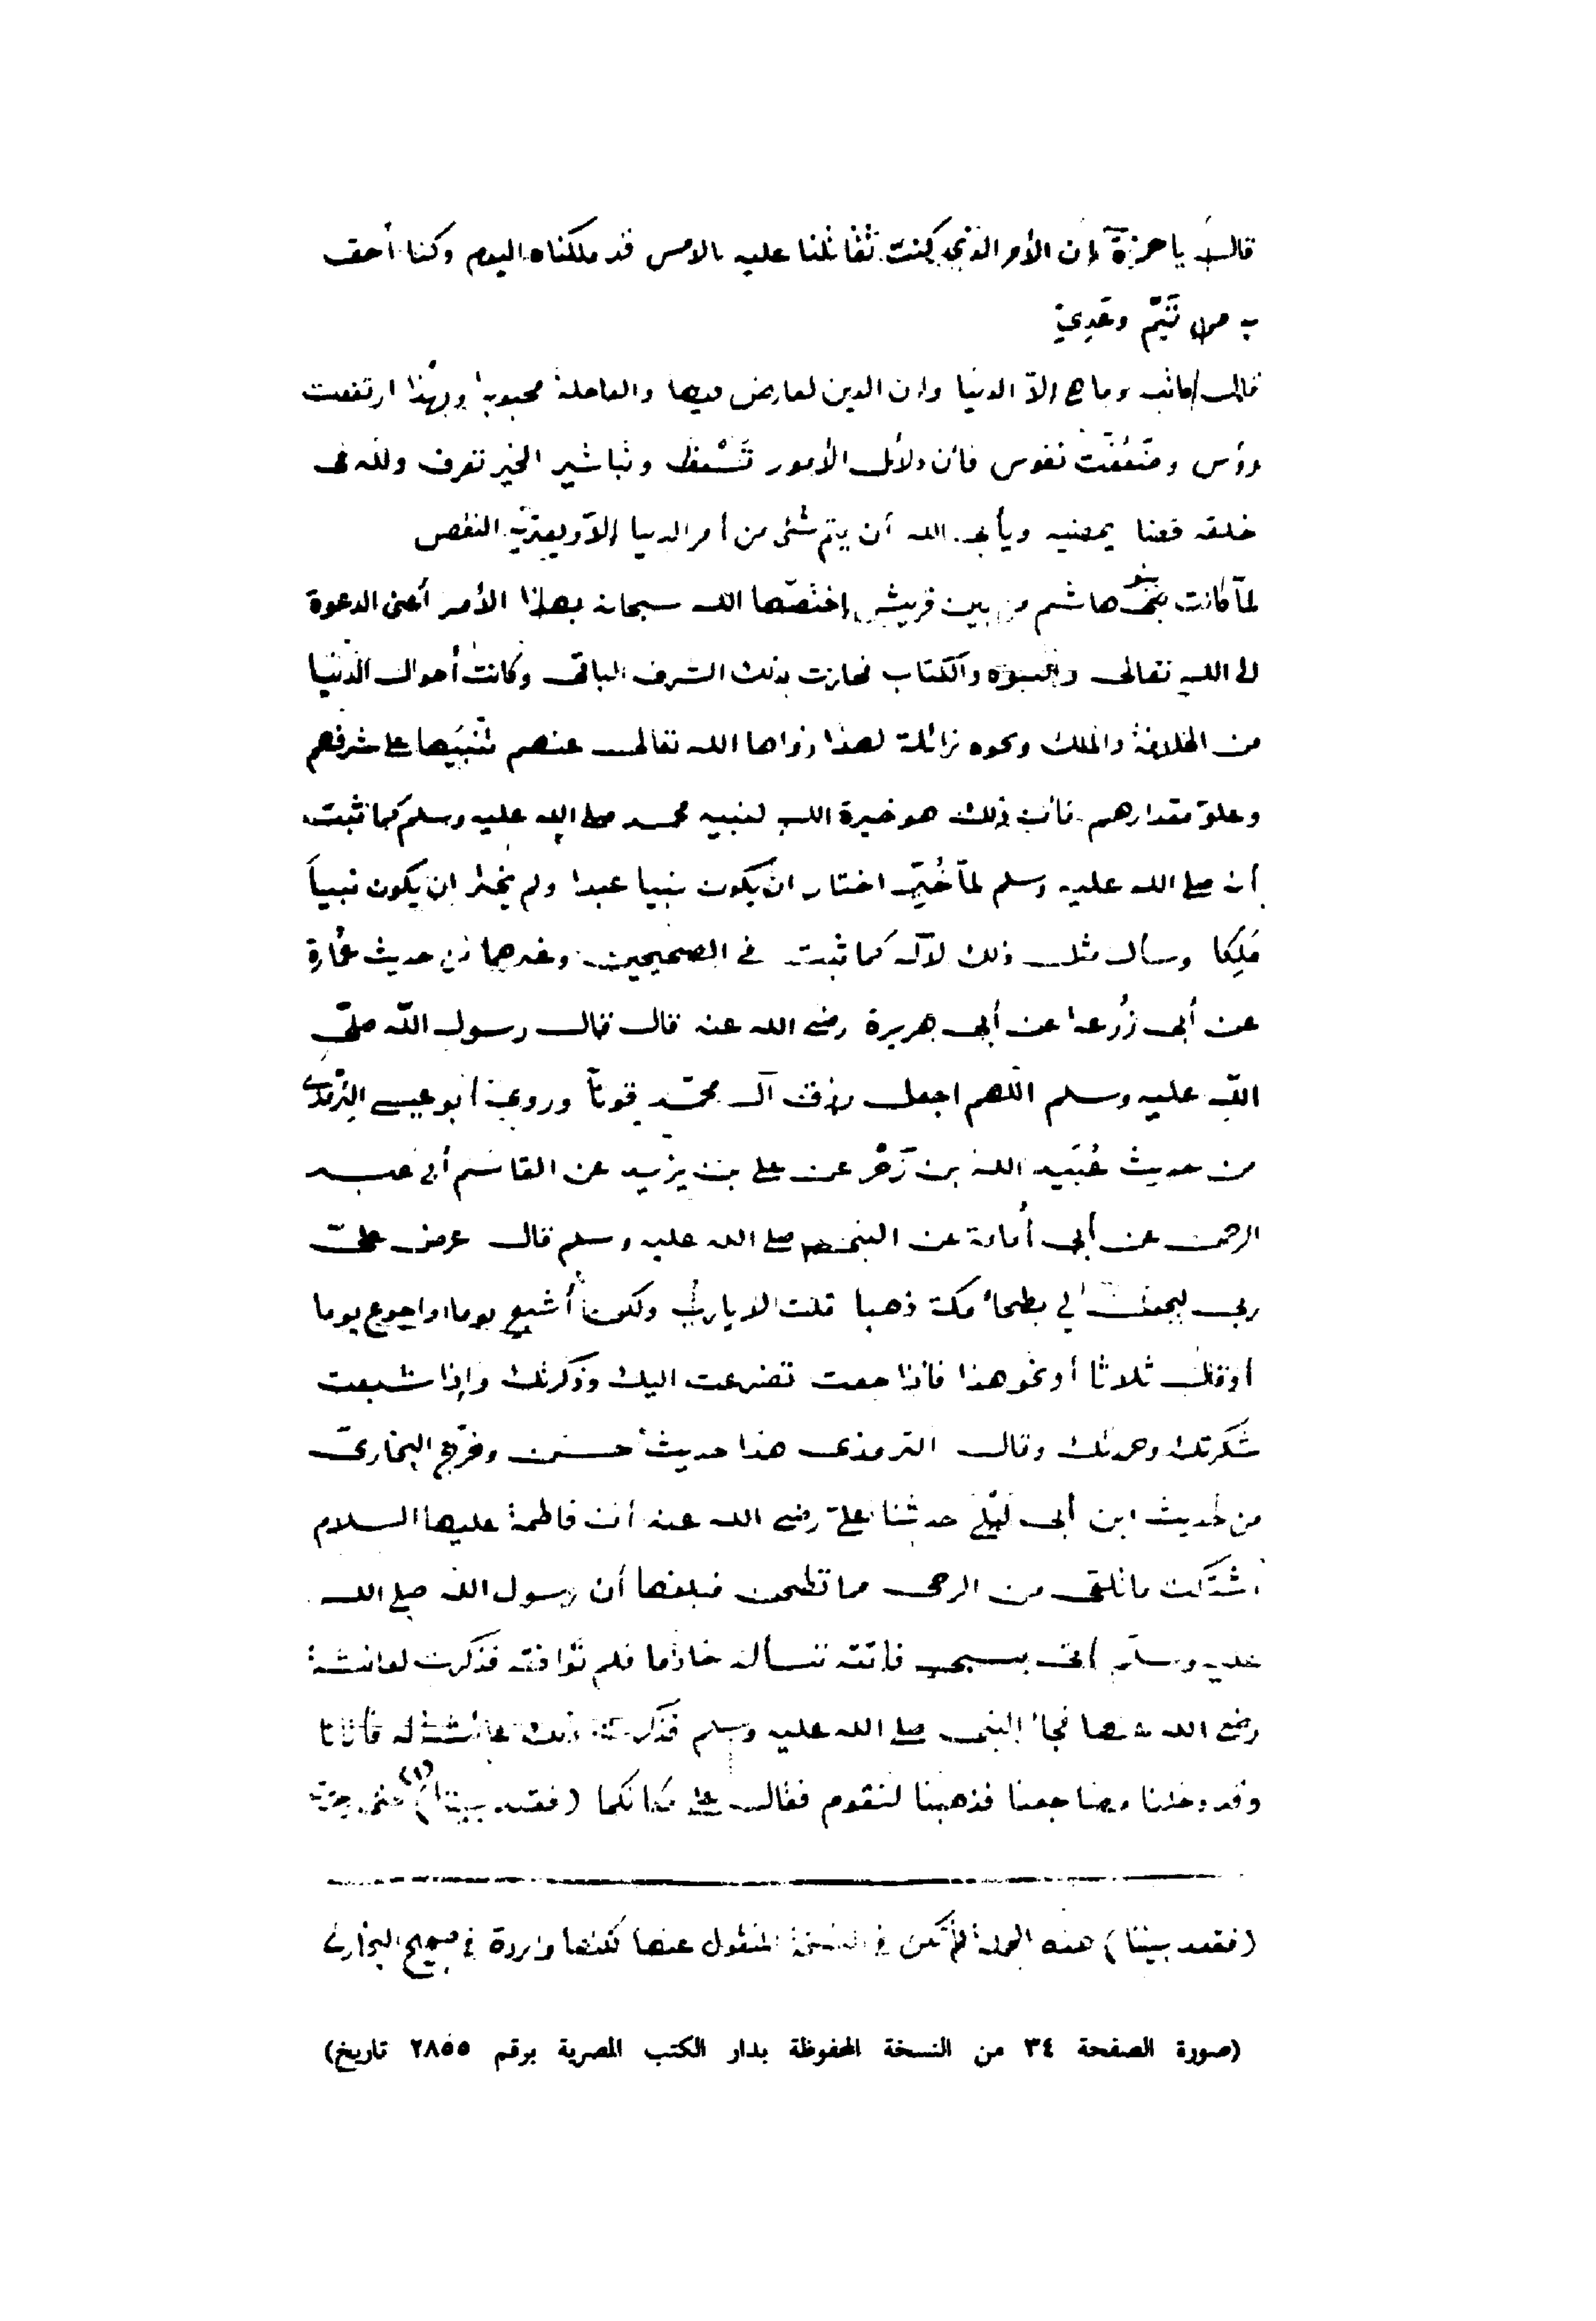 قال يا حمزة إن الأمر الذي كنت تقاتلنا عليه بالامس قد ملكناه اليوم وكنا أحق
به من تَيْم وعَدِيّ
وما هي إلّا الدنيا وان الدين لعارض فيها والعاجلة محبوبة وبهذا ارتفعت
رؤس نفوس فان دلائل الأمور وتباشير الخير تعرف ولله في
خلقه قضا يمضيه ويأبى الله أن يتم شئ من أمر الدنيا إلّا ويعتريه النقص
لمّا كانت بنو هاشم من بين قريش إختصّها الله سبحانه بهذا الأمر أعنى الدعوة
الى الله تعالى والنبوّة والكتاب فحازت بذلك الشرف الباقى وكانت أحوال الدنيا
من الخلافة والملك ونحوه زائلة لهذا زواها الله تعالى عنهم تنبيها على شرفهم
وعلوّ مقدارهم فان ذلك هو خيرة الله لنبيه محمد صلى الله عليه وسلم كما ثبت
أنه صلى الله عليه وسلم لمّا خُيّر اختار ان يكون نبيا عبدا ولم يختر ان يكون نبياً
مَلِكا وسأل مثل ذلك لآله كما ثبت في الصحيحين وغيرهما من حديث عُمارة
عن أبى زُرعة عن أبى هريرة رضى الله عنه قال قال رسول الله صلّى
الله عليه وسلم اللهم اجعل رزق آل محمّد قوتاً وروى أبو عيسى الترمذى
من حديث عُبَيد الله بن زَحْر عن على بن يزيد عن القاسم أبى عبد
الرحمن عن أبى أُمامة عن النبى صلى الله عليه وسلم قال عرض علىّ
ربى ليجعل لي بطحاء مكة ذهبا قلت لا يا رب ولكن أشبع يوما واجوع يوما
أو قال ثلاثا أو نحو هذا فاذا جعت تضرعت اليك وذكرتك وإذا شبعت
شكرتك وحمدتك وقال الترمذى هذا حديث حسن وخرّج البخارىّ
من حديث ابن أبى لَيْلى حدثنا علىّ رضى الله عنه أن فاطمة عليها السلام
اشتكت ما تلقى من الرحى مما تطحن فبلغها أن رسول الله صلى الله
عليه وسلّم أتى بسبى فاتته تسأله خادما فلم توافقه فذكرت لعائشة
رضى الله عنها فجاء النبى صلى الله عليه وسلم فذكرت ذلك عائشة له فأتانا
وقد دخلنا مضاجعنا فذهبنا لنقوم فقال على مكانكما (فقعد بيننا) (١) حتى وجدت
(فقعد بيننا) هذه الجملة لم تكن في النسخة المنقول عنها لكنها واردة في صحيح البخارى
(صورة الصفحة ٣٤ من النسخة المحفوظة بدار الكتب المصرية برقم ٢٨٥٥ تاريخ)